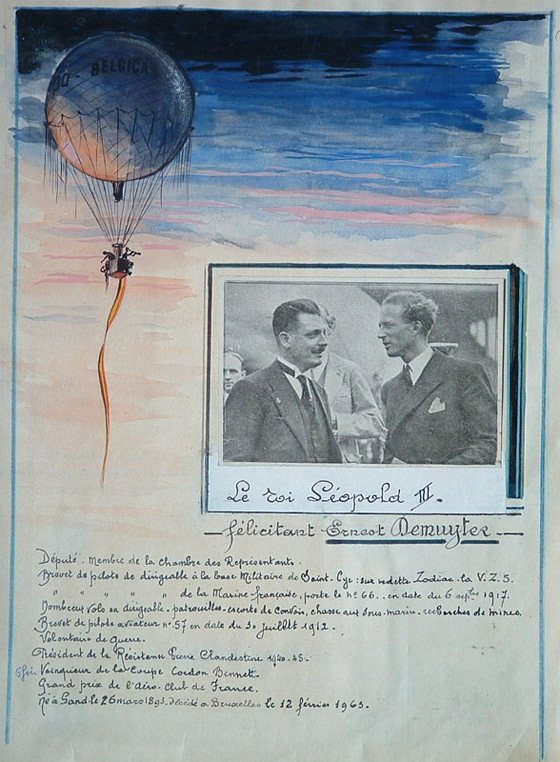 OO-BELGICA
Le roi Léopold III.
félicitant Ernest Demuyter
Député. Membre de la Chambre des Représentants.
Brevet de pilote de dirigeable à la base Militaire de Saint-Cyr: sur vedette Zodiac. la V.Z.5.
" " " " " de la Marine française, porte le no 66. en date du 6 sepbre 1917.
Nombreux vols en dirigeable. patrouilles. escorte de convois, chasse aux sous-marin. recherches de mines.
Brevet de pilote aviateur no 57 en date du 30 juillet 1912.
Volontaire de guerre.
Président de la Résistance Presse Clandestine 1940-45.
6 fois Vainqueur de la Coupe Gordon Bennett.
Grand prix de l'Aéro-Club de France.
Né à Gand le 26 mars 1893. décédé à Bruxelles le 12 février 1963.